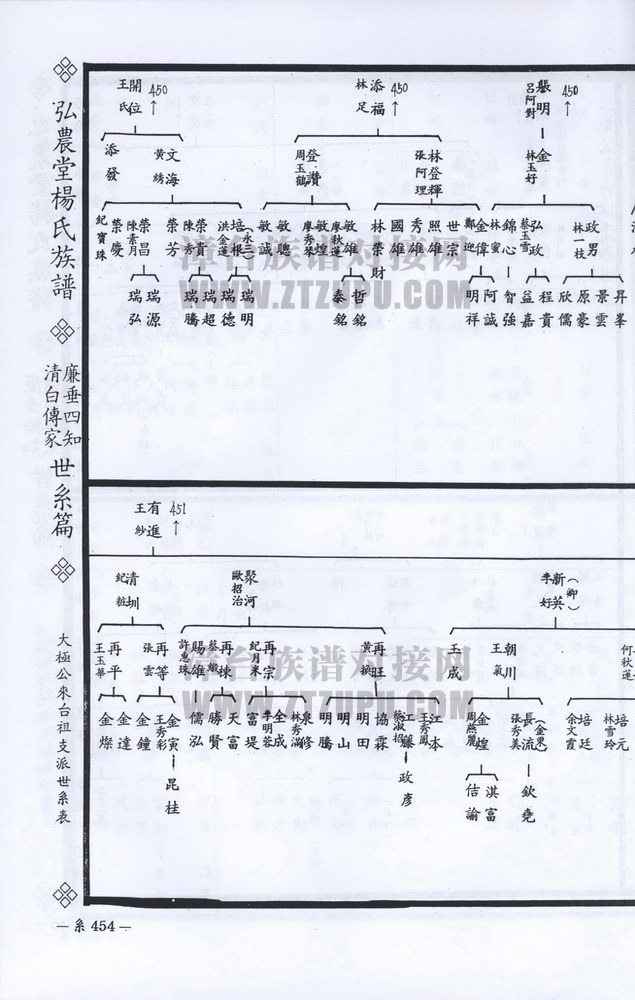 弘農堂楊氏族譜
廉垂四知
清白傳家
世系篇
大極公來台祖支派世系表
450↑
明
呂阿對
添福
林足
450↑
開位
王氏
450↑
金
林玉好
林登輝
張阿理
登讚
周玉鶴
文海
黃綉
添發
政男
林一枝
弘政
蔡玉雪
錦心
林蜜
金偉
鄭迎
世宗
照雄
秀雄
國雄
林榮財
敏雄
廖秋蓮
敏煌
廖秀琴
敏聰
敏誠
培根
(永三)
洪金蓮
榮貴
陳秀
榮芳
榮昌
陳素月
榮慶
紀寶珠
昇峯
景雲
原豪
欣儒
程貴
益嘉
智強
阿誠
明祥
哲銘
泰銘
瑞明
瑞德
瑞超
瑞騰
瑞源
瑞弘
有進
王紗
451↑
新英
(卿)
李好
聚河
歐招治
清圳
紀粧
何秋蓮
朝川
王氣
玉成
再旺
黃嬪
再宗
紀月來
再棟
賜雄
許惠珠
再等
張雲
再平
王玉華
培元
林雪玲
培廷
余文霞
長流
(金東)
張秀美
金煌
周燕麗
江本
王秀鳳
江籐
蔡淑招
協霖
明田
明山
明騰
泉修
林秀滿
全成
李明蓉
富堤
天富
勝賢
儒泓
金寅
王秀彩
金鐘
金達
金燦
欽堯
淇富
佶諭
政彥
昆桂
濟台族谱对接网
WWW.ZTZUPU.COM
濟台族谱对接网
WWW.ZTZUPU.COM
— 系 454 —